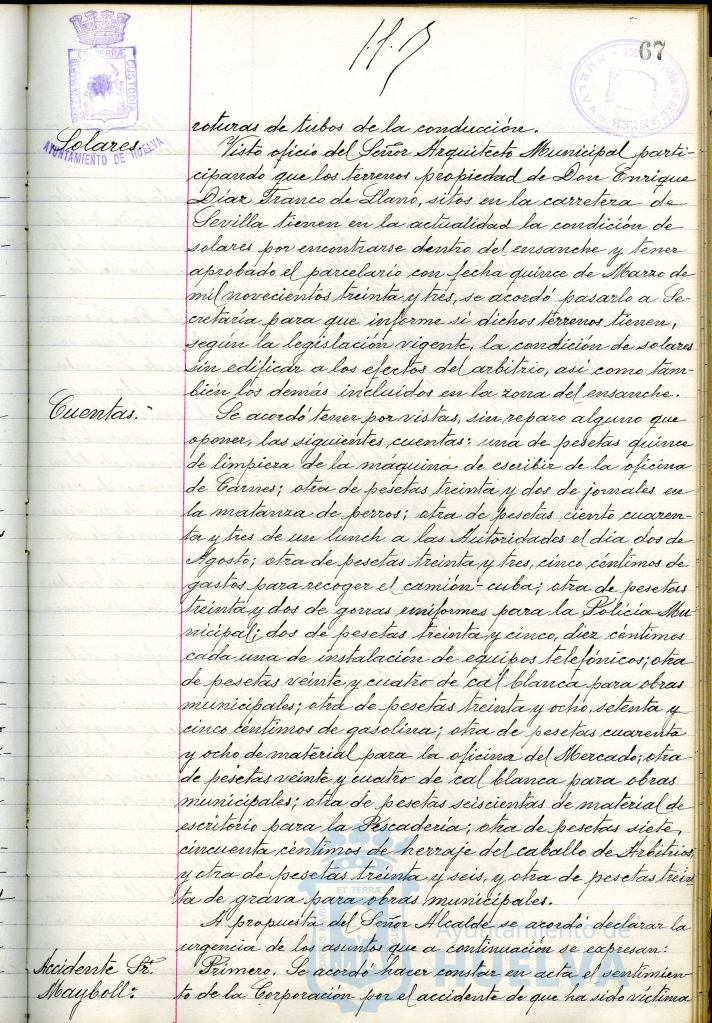 67
PORTUS MARIS ET TERRÆ CUSTODIA
AYUNTAMIENTO DE HUELVA
roturas de tubos de la conducción.
Solares.
Visto oficio del Señor Arquitecto Municipal parti-
cipando que los terrenos propiedad de Don Enrique
Díaz Franco de Llano, sitos en la carretera de
Sevilla tienen en la actualidad la condición de
solares por encontrarse dentro del ensanche y tener
aprobado el parcelario con fecha quince de Marzo de
mil novecientos treinta y tres, se acordó pasarlo a Se-
cretaría para que informe si dichos terrenos tienen,
según la legislación vigente, la condición de solares
sin edificar a los efectos del arbitrio, así como tam-
bién los demás incluidos en la zona del ensanche.
Cuentas.
Se acordó tener por vistas, sin reparo alguno que
oponer, las siguientes cuentas: una de pesetas quince
de limpieza de la máquina de escribir de la oficina
de Carnes; otra de pesetas treinta y dos de jornales en
la matanza de perros; otra de pesetas ciento cuaren-
ta y tres de un lunch a las Autoridades el día dos de
Agosto; otra de pesetas treinta y tres, cinco céntimos de
gastos para recoger el camión-cuba; otra de pesetas
treinta y dos de gorras uniformes para la Policía Mu-
nicipal; dos de pesetas treinta y cinco, diez céntimos
cada una de instalación de equipos telefónicos; otra
de pesetas veinte y cuatro de cal blanca para obras
municipales; otra de pesetas treinta y ocho, setenta y
cinco céntimos de gasolina; otra de pesetas cuarenta
y ocho de material para la oficina del Mercado; otra
de pesetas veinte y cuatro de cal blanca para obras
municipales; otra de pesetas seiscientas de material de
escritorio para la Pescadería; otra de pesetas siete,
cincuenta céntimos de herraje del caballo de Arbitrios,
y otra de pesetas treinta y seis, y otra de pesetas trein-
ta de grava para obras municipales.
A propuesta del Señor Alcalde se acordó declarar la
urgencia de los asuntos que a continuación se expresan:
Accidente Sr.
Mayboll:
Primero. Se acordó hacer constar en acta el sentimien-
to de la Corporación por el accidente de que ha sido víctima
Ayuntamiento de
HUELVA